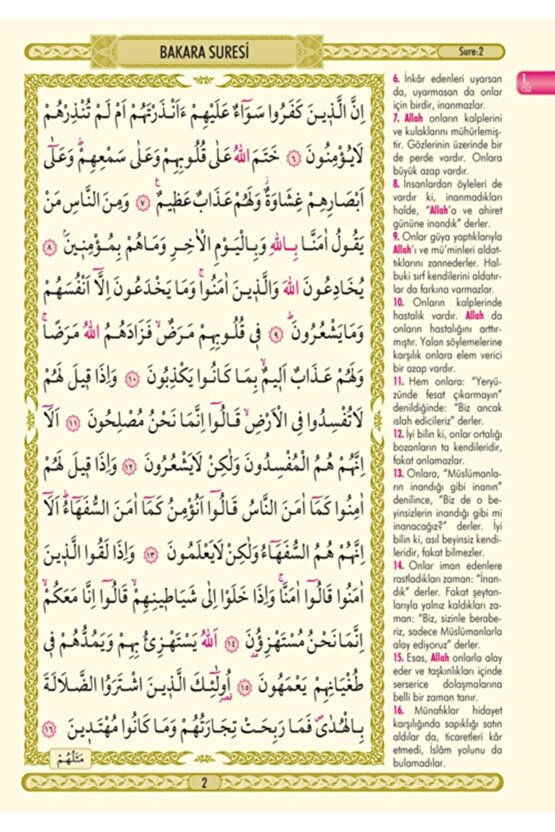 BAKARA SURESİ
Sure:2
1. CÜZ
اِنَّ الَّذ۪ينَ كَفَرُوا سَوَٓاءٌ عَلَيْهِمْ ءَاَنْذَرْتَهُمْ اَمْ لَمْ تُنْذِرْهُمْ
لَا يُؤْمِنُونَ ﴿٦﴾ خَتَمَ اللّٰهُ عَلٰى قُلُوبِهِمْ وَعَلٰى سَمْعِهِمْۜ وَعَلٰٓى
اَبْصَارِهِمْ غِشَاوَةٌۘ وَلَهُمْ عَذَابٌ عَظ۪يمٌ۟ ﴿٧﴾ وَمِنَ النَّاسِ مَنْ
يَقُولُ اٰمَنَّا بِاللّٰهِ وَبِالْيَوْمِ الْاٰخِرِ وَمَا هُمْ بِمُؤْمِن۪ينَۢ ﴿٨﴾
يُخَادِعُونَ اللّٰهَ وَالَّذ۪ينَ اٰمَنُواۚ وَمَا يَخْدَعُونَ اِلَّٓا اَنْفُسَهُمْ
وَمَا يَشْعُرُونَۜ ﴿٩﴾ ف۪ي قُلُوبِهِمْ مَرَضٌۙ فَزَادَهُمُ اللّٰهُ مَرَضًاۚ
وَلَهُمْ عَذَابٌ اَل۪يمٌۙ بِمَا كَانُوا يَكْذِبُونَ ﴿١٠﴾ وَاِذَا ق۪يلَ لَهُمْ
لَا تُفْسِدُوا فِي الْاَرْضِۙ قَالُٓوا اِنَّمَا نَحْنُ مُصْلِحُونَ ﴿١١﴾ اَلَٓا
اِنَّهُمْ هُمُ الْمُفْسِدُونَ وَلٰكِنْ لَا يَشْعُرُونَ ﴿١٢﴾ وَاِذَا ق۪يلَ لَهُمْ
اٰمِنُوا كَمَٓا اٰمَنَ النَّاسُ قَالُٓوا اَنُؤْمِنُ كَمَٓا اٰمَنَ السُّفَهَٓاءُۜ اَلَٓا
اِنَّهُمْ هُمُ السُّفَهَٓاءُ وَلٰكِنْ لَا يَعْلَمُونَ ﴿١٣﴾ وَاِذَا لَقُوا الَّذ۪ينَ
اٰمَنُوا قَالُٓوا اٰمَنَّاۚ وَاِذَا خَلَوْا اِلٰى شَيَاط۪ينِهِمْۙ قَالُٓوا اِنَّا مَعَكُمْۙ
اِنَّمَا نَحْنُ مُسْتَهْزِؤُ۫نَ ﴿١٤﴾ اَللّٰهُ يَسْتَهْزِئُ بِهِمْ وَيَمُدُّهُمْ ف۪ي
طُغْيَانِهِمْ يَعْمَهُونَ ﴿١٥﴾ اُو۬لٰٓئِكَ الَّذ۪ينَ اشْتَرَوُا الضَّلَالَةَ
بِالْهُدٰىۖ فَمَا رَبِحَتْ تِجَارَتُهُمْ وَمَا كَانُوا مُهْتَد۪ينَ ﴿١٦﴾
مَثَلُهُمْ
2
6. İnkâr edenleri uyarsan
da, uyarmasan da onlar
için birdir, inanmazlar.
7. Allah onların kalplerini
ve kulaklarını mühürlemiş-
tir. Gözlerinin üzerinde bir
de perde vardır. Onlara
büyük azap vardır.
8. İnsanlardan öyleleri de
vardır ki, inanmadıkları
halde, "Allah'a ve ahiret
gününe inandık" derler.
9. Onlar güya yaptıklarıyla
Allah'ı ve mü'minleri aldat-
tıklarını zannederler. Hal-
buki sırf kendilerini aldatır-
lar da farkına varmazlar.
10. Onların kalplerinde
hastalık vardır. Allah da
onların hastalığını arttır-
mıştır. Yalan söylemelerine
karşılık onlara elem verici
bir azap vardır.
11. Hem onlara: "Yeryü-
zünde fesat çıkarmayın"
denildiğinde: "Biz ancak
ıslah edicileriz" derler.
12. İyi bilin ki, onlar ortalığı
bozanların ta kendileridir,
fakat anlamazlar.
13. Onlara, "Müslümanla-
rın inandığı gibi inanın"
denilince, "Biz de o be-
yinsizlerin inandığı gibi mi
inanacağız?" derler. İyi
bilin ki, asıl beyinsiz kendi-
leridir, fakat bilmezler.
14. Onlar iman edenlere
rastladıkları zaman: "İnan-
dık" derler. Fakat şeytan-
larıyla yalnız kaldıkları za-
man: "Biz, sizinle berabe-
riz, sadece Müslümanlarla
alay ediyoruz" derler.
15. Esas, Allah onlarla alay
eder ve taşkınlıkları içinde
serserice dolaşmalarına
belli bir zaman tanır.
16. Münafıklar hidayet
karşılığında sapıklığı satın
aldılar da, ticaretleri kâr
etmedi, İslâm yolunu da
bulamadılar.